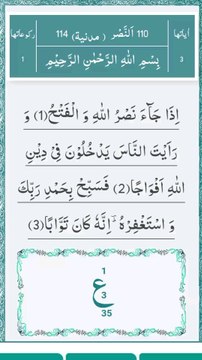 اٰیاتها 110 اَلنَّصْر ( مدنية ) 114 ركوعاتها
3 بِسْمِ اللهِ الرَّحْمٰنِ الرَّحِيْمِ 1
اِذَا جَآءَ نَصْرُ اللهِ وَ الْفَتْحُ(1) وَ
رَاَيْتَ النَّاسَ يَدْخُلُوْنَ فِيْ دِيْنِ
اللهِ اَفْوَاجًا(2) فَسَبِّحْ بِحَمْدِ رَبِّكَ
وَ اسْتَغْفِرْهُ ؔ اِنَّهٗ كَانَ تَوَّابًا(3)
1
ع
3
35